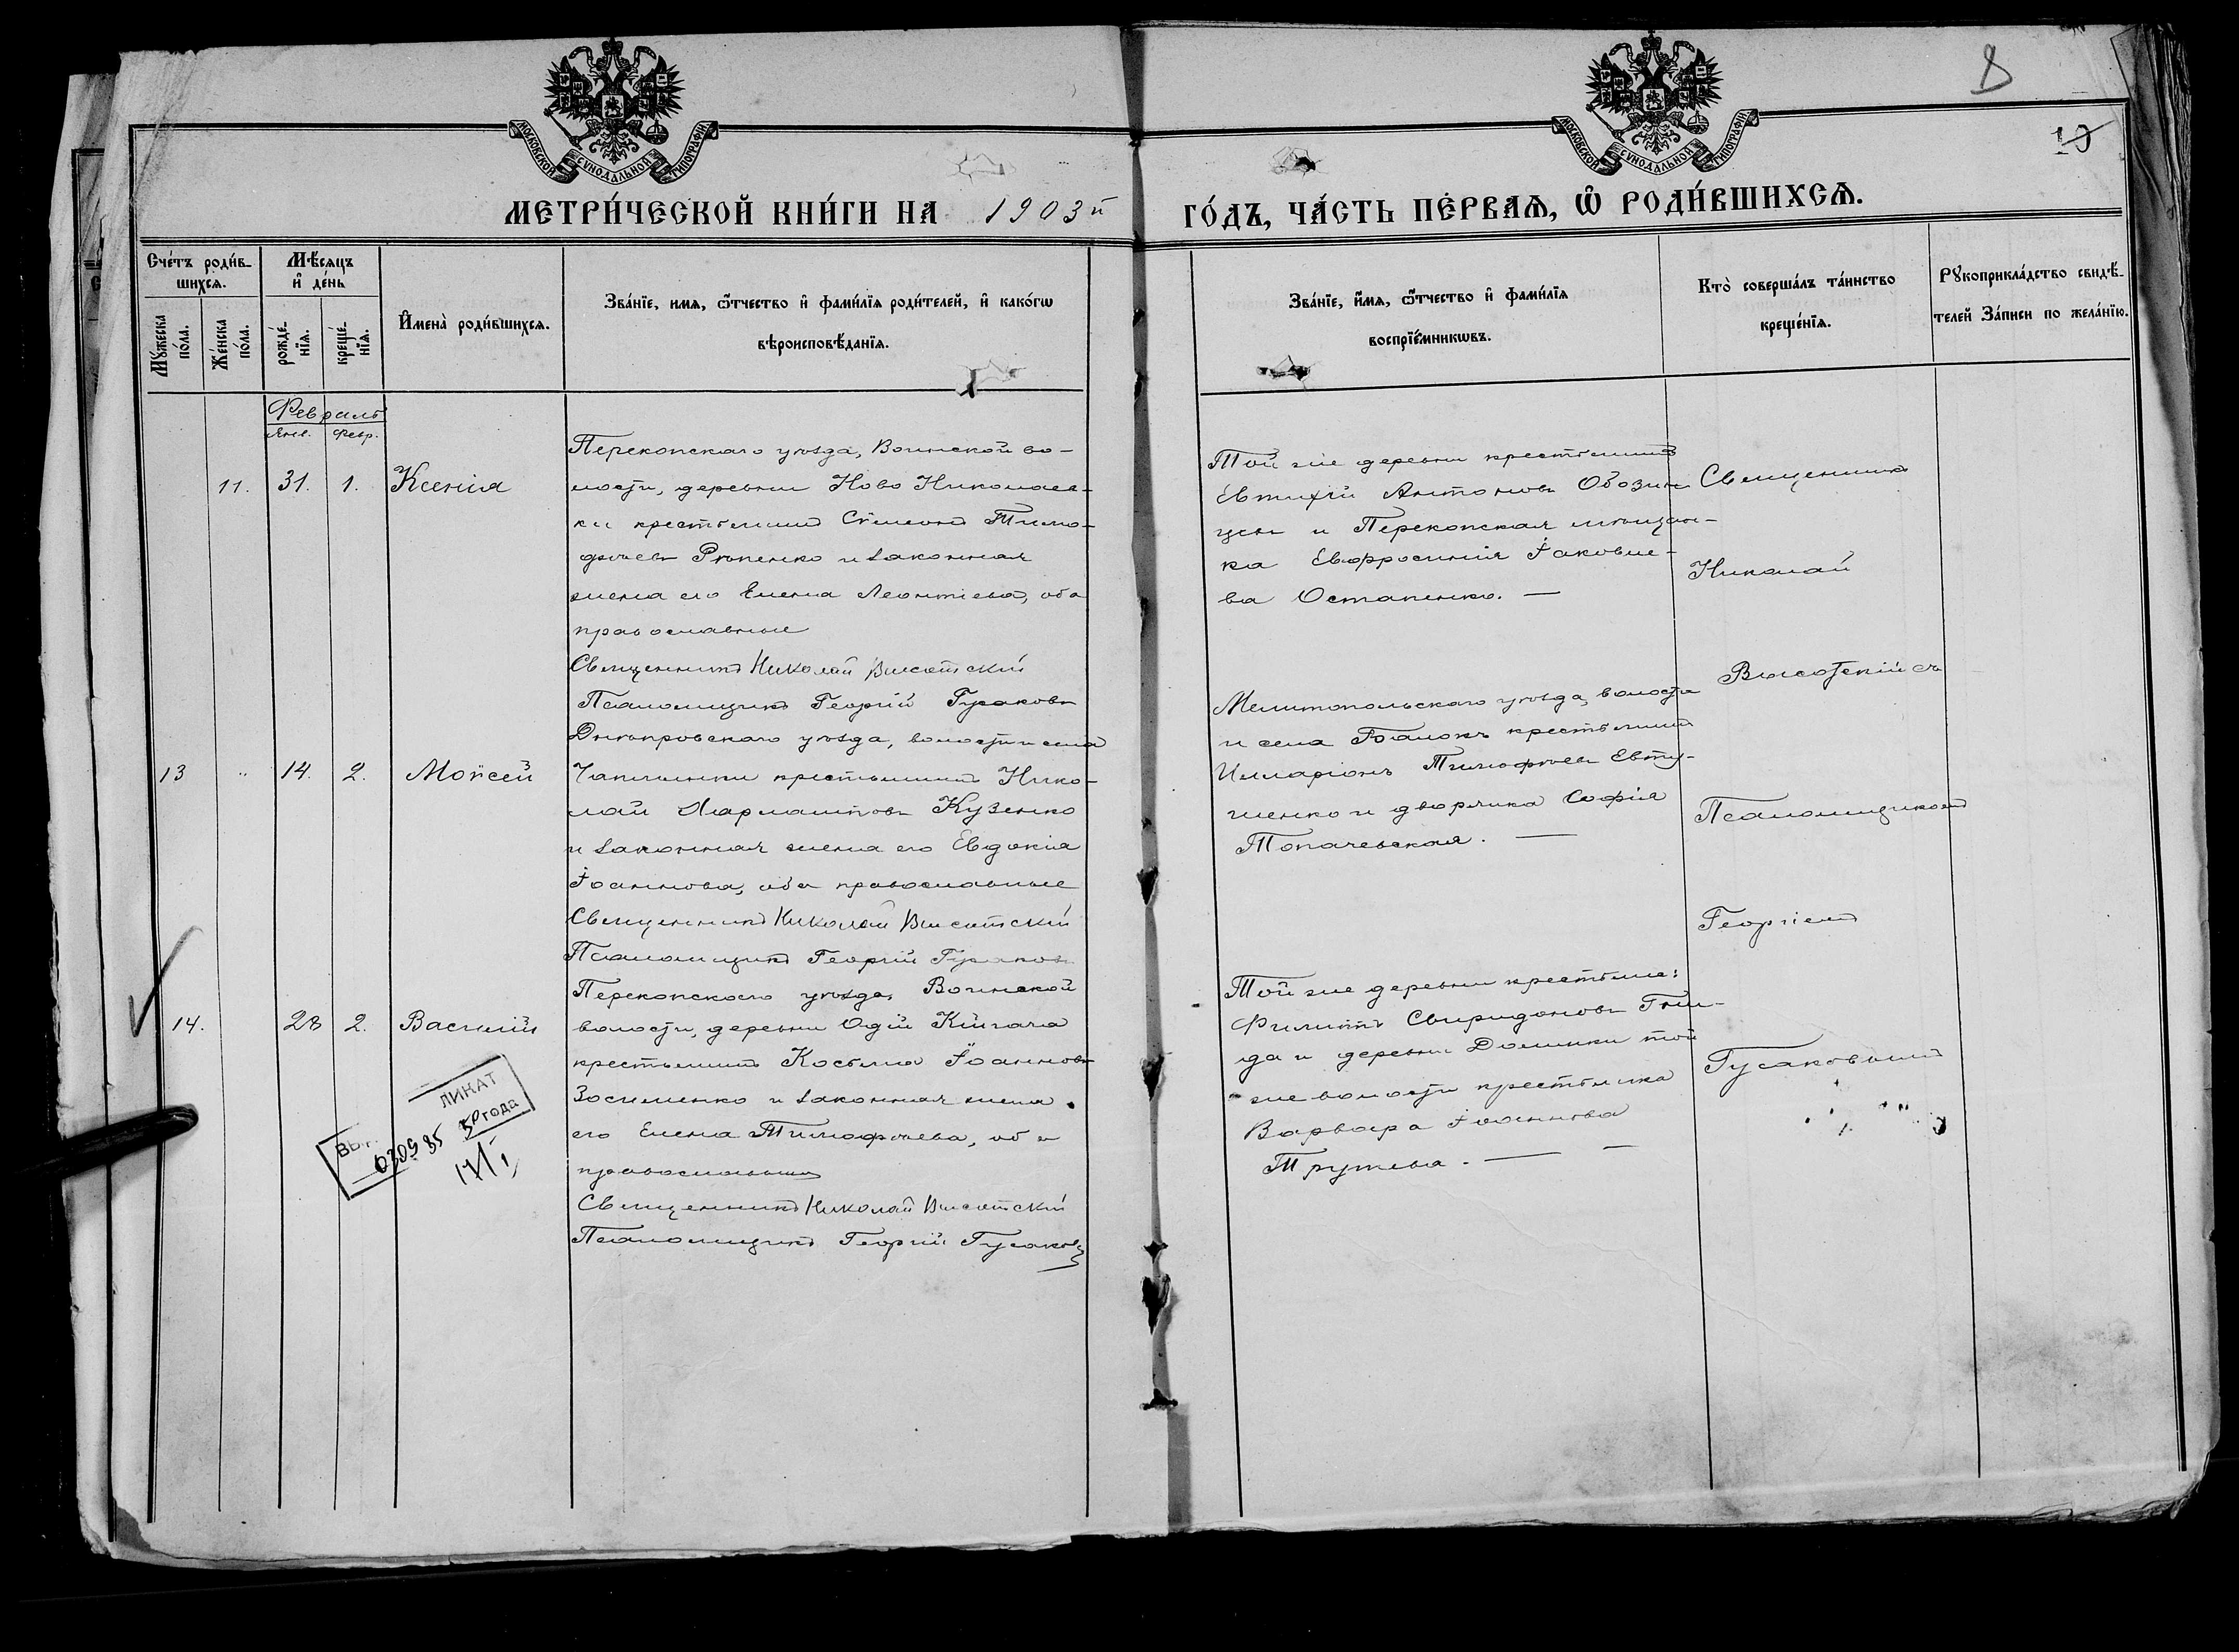 8
10
МОСКОВСКОЙ СУНОДАЛЬНОЙ ТИПОГРАФІИ
МОСКОВСКОЙ СУНОДАЛЬНОЙ ТИПОГРАФІИ
МЕТРИ́ЧЕСКОЙ КНИ́ГИ НА 1903й
ГО́ДЪ, ЧА́СТЬ ПЕ́РВАѦ, Ѡ҆ РОДИ́ВШИХСѦ.
Сче́тъ роди́в-
шихсѧ.
Мꙋ́жеска по́ла.
Же́нска по́ла.
Мѣ́сѧцъ
и҆ де́нь
рожде́-
нїѧ.
креще́-
нїѧ.
И҆мена̀ роди́вшихсѧ.
Зва́нїе, имѧ, ѻ҆́тчество и҆ фами́лїѧ роди́телей, и҆ како́гѡ
вѣроисповѣ́данїѧ.
Зва́нїе, и҆́мѧ, ѻ҆́тчество и҆ фами́лїѧ
воспрїе́мникѡвъ.
Кто̀ соверша́лъ та́инство
креще́нїѧ.
Рꙋкоприкла́дство свидѣ́-
телей За́писи по жела́нїю.
Февраль
Янв. Февр.
11. 31. 1. Ксенія
Перекопскаго уѣзда, Воинской во-
лости, деревни Ново Николаев-
ки крестьянинъ Сѵмеонъ Тимо-
ѳеевъ Рѣпенко и законная
жена его Елена Леонтіева, оба
православные
Священникъ Николай Высотскій
Псаломщикъ Георгій Гусаковъ
Той же деревни крестьянинъ
Евтихій Антоновъ Обозин-
цен и Перекопская мѣщан-
ка Евфросинія Іаковле-
ва Остапенко. —
Священникъ
Николай
Высотскій съ
Псаломщикомъ
Георгіемъ
Гусаковымъ
13 " 14. 2. Моѵсей
Днѣпровскаго уѣзда, волости и села
Чаплинки крестьянинъ Нико-
лай Харлампіовъ Кузенко
и законная жена его Евдокія
Іоаннова, оба православные
Священникъ Николай Высотскій
Псаломщикъ Георгій Гусаковъ
Мелитопольскаго уѣзда, волости
и села крестьянинъ
Илларіонъ Тимофѣевъ Евту-
шенко и дворянка Софія
Топачевская. —
14. 28 2. Василій
Перекопскаго уѣзда, Воинской
волости, деревни Одги Кигача
крестьянинъ Косьма Іоанновъ
Зосименко и законная жена
его Елена Тимофѣева, оба
православные
Священникъ Николай Высотскій
Псаломщикъ Георгій Гусаковъ
Той же деревни крестьяне:
Филиппъ Свиридоновъ Гни-
да и деревни Долинки той
же волости крестьянка
Варвара Іоаннова
—
ЛИКАТ
50 года